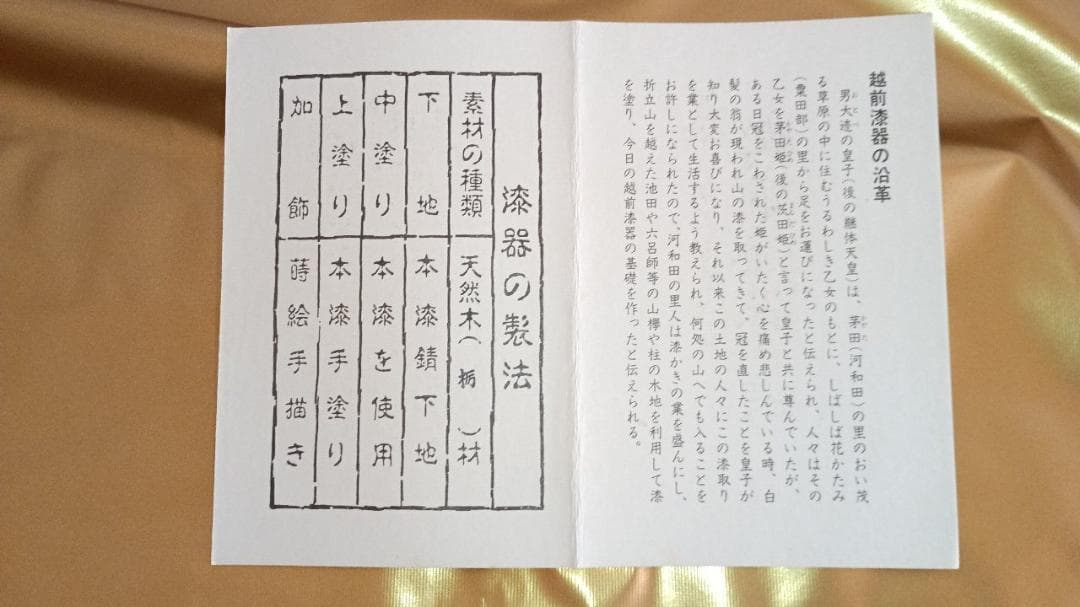 越前漆器の沿革
男大迹の皇子（後の継体天皇）は、茅田（河和田）の里のおい茂
る草原の中に住むうるわしき乙女のもとに、しばしば花かたみ
（粟田部）の里から足をお運びになったと伝えられ、人々はその
乙女を茅田姫（後の茨田姫）と言って皇子と共に尊んでいたが、
ある日冠をこわされた姫がいたく心を痛め悲しんでいる時、白
髪の翁が現われ山の漆を取ってきて、冠を直したことを皇子が
知り大変お喜びになり、それ以来この土地の人々にこの漆取り
を業として生活するよう教えられ、何処の山へでも入ることを
お許しになられたので、河和田の里人は漆かきの業を盛んにし、
折立山を越えた池田や六呂師等の山欅や柱の木地を利用して漆
を塗り、今日の越前漆器の基礎を作ったと伝えられる。
漆器の製法
素材の種類 天然木（栃）材
下地 本漆錆下地
中塗り 本漆を使用
上塗り 本漆手塗り
加飾 蒔絵手描き